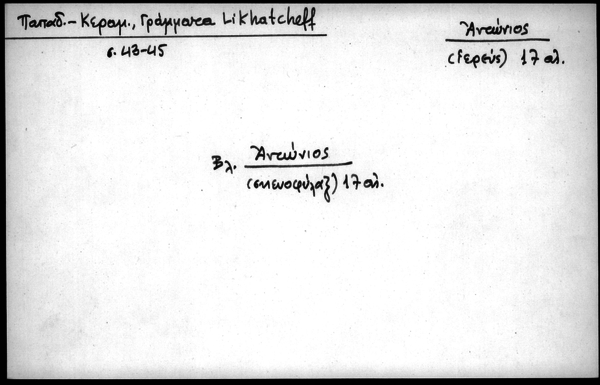 Παπαδ.-Κεραμ., Γράμματα Likhatcheff
σ. 43-45
Ἀντώνιος
(ἱερεύς) 17 αἰ.
Βλ. Ἀντώνιος
(σκευοφύλαξ) 17 αἰ.